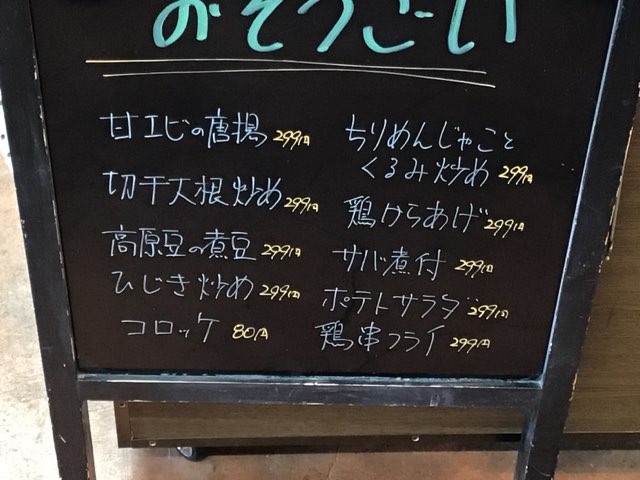 おそうざい
甘エビの唐揚 299円
切干大根炒め 299円
高原豆の煮豆 299円
ひじき炒め 299円
コロッケ 80円
ちりめんじゃこと
くるみ炒め 299円
鶏からあげ 299円
サバ煮付 299円
ポテトサラダ 299円
鶏串フライ 299円